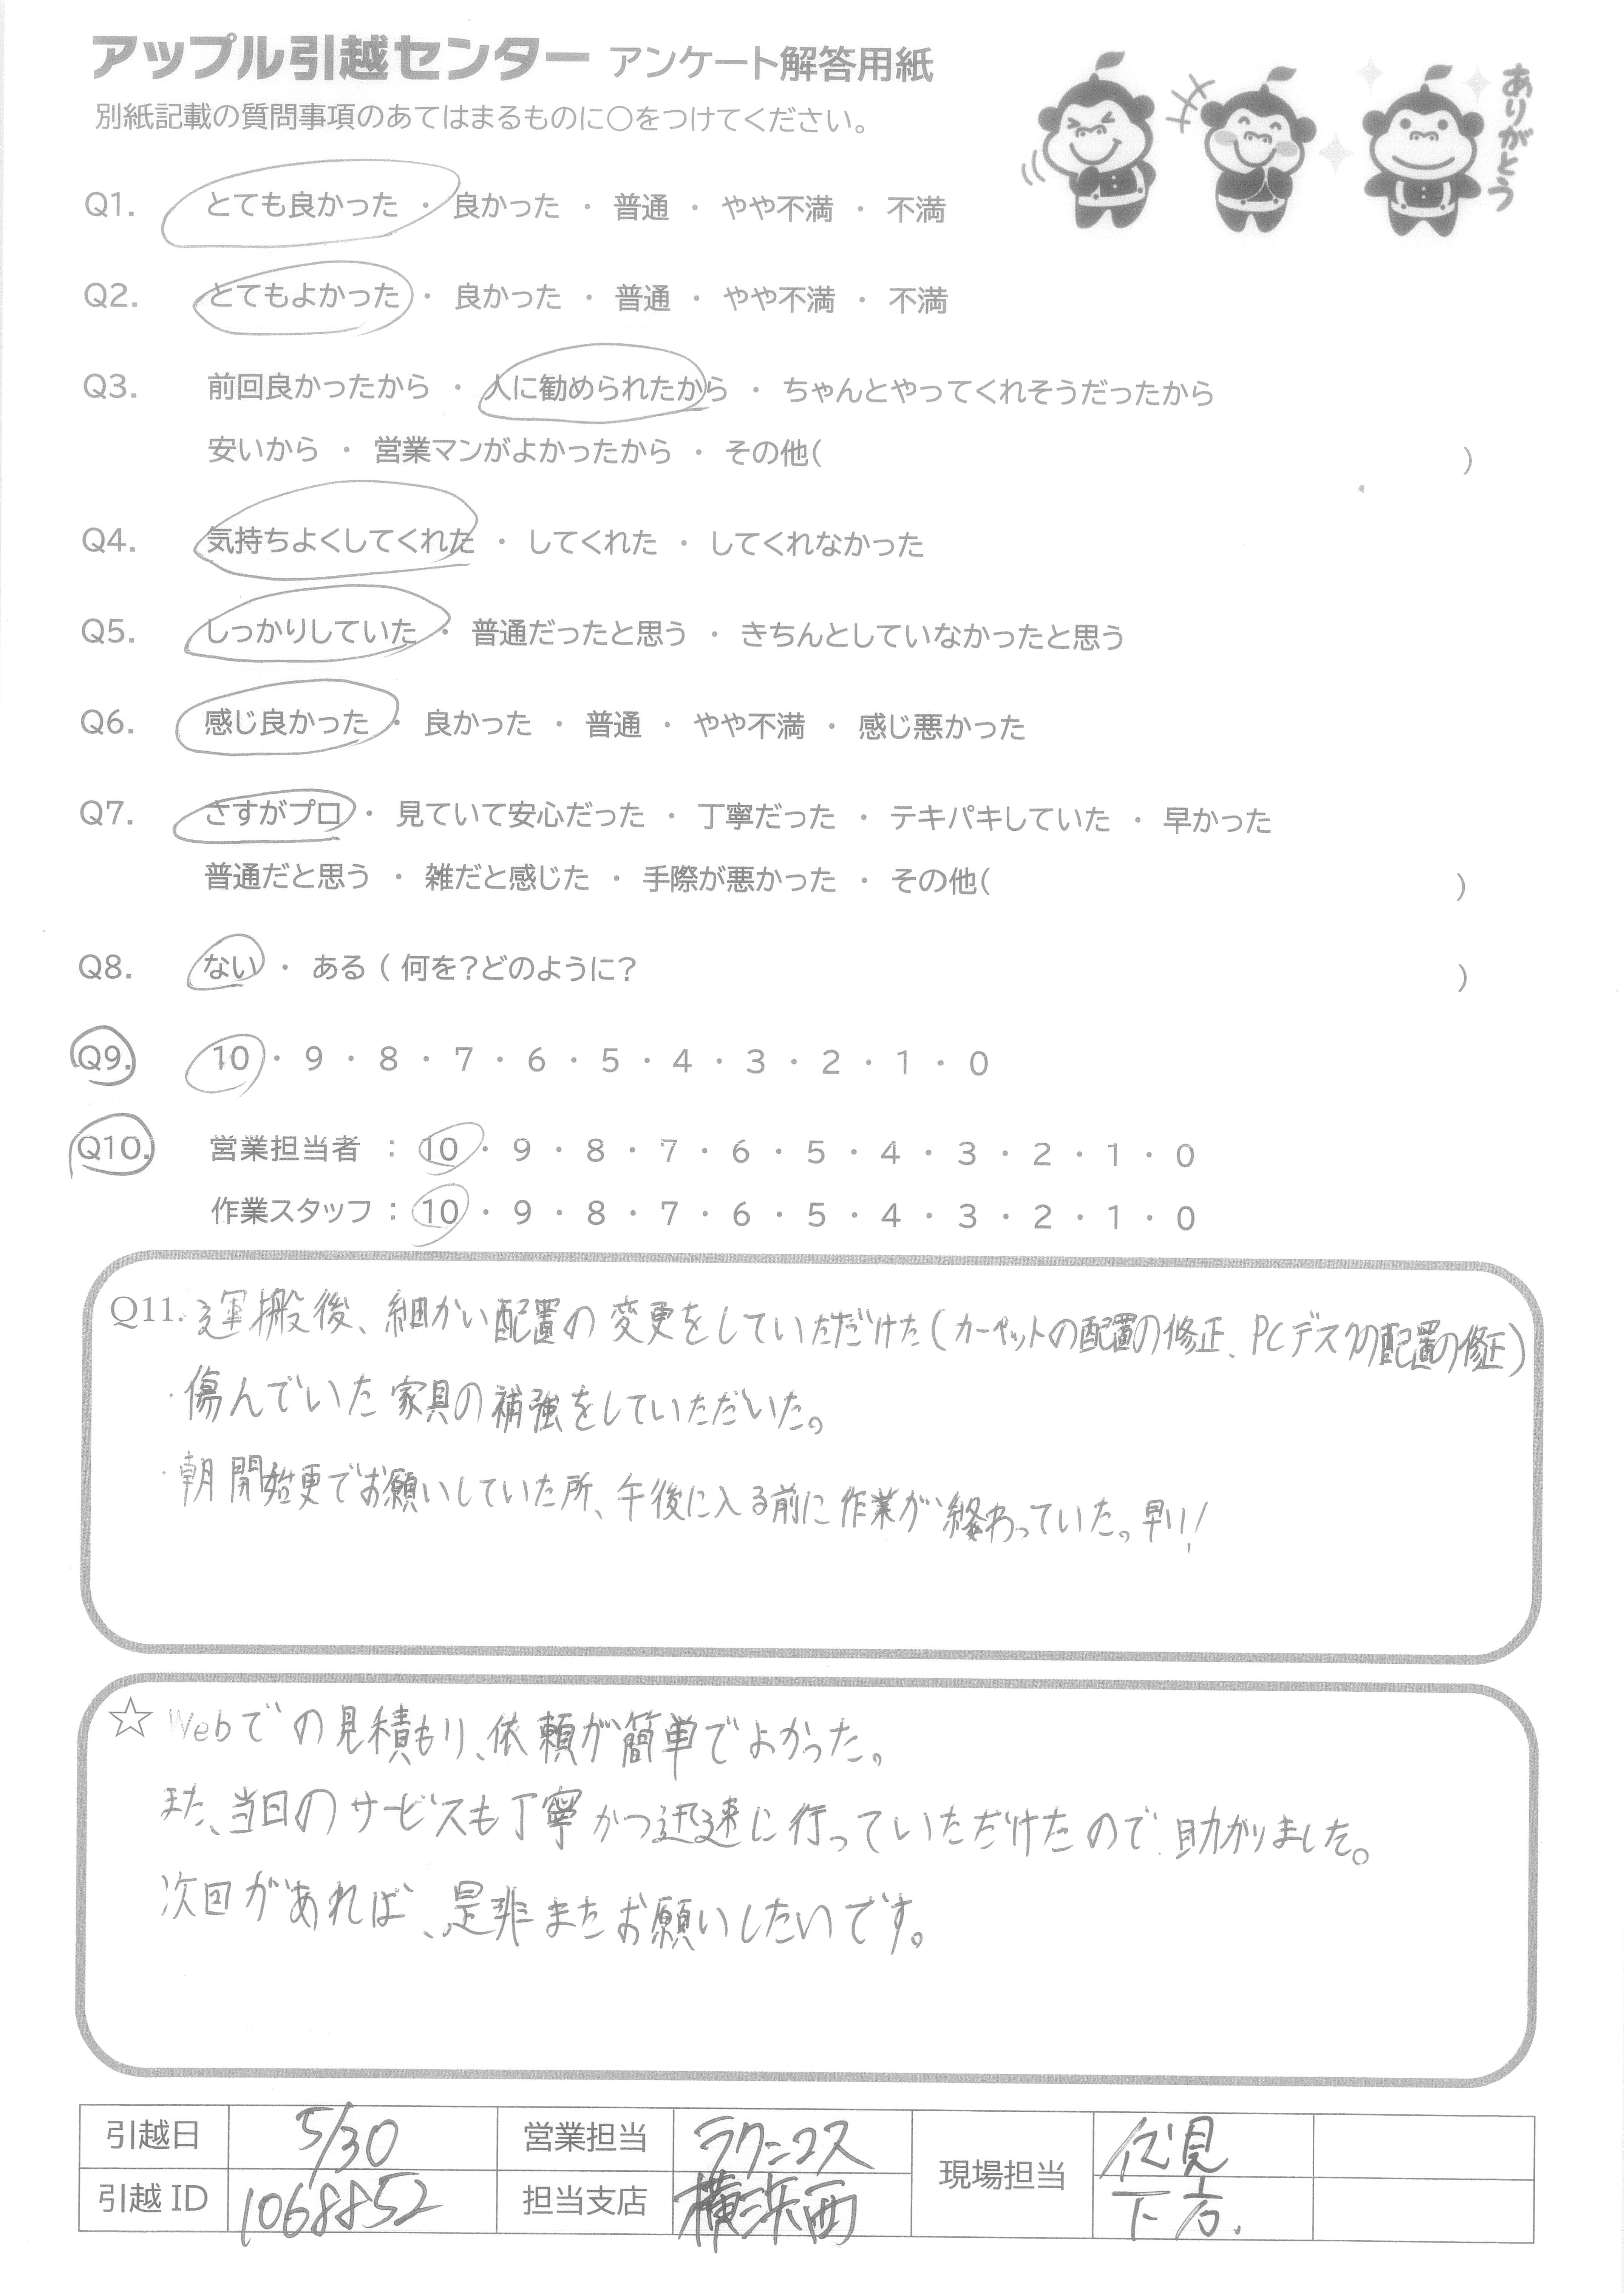 アップル引越センター アンケート解答用紙
別紙記載の質問事項のあてはまるものに○をつけてください。
ありがとう
Q1. とても良かった ・ 良かった ・ 普通 ・ やや不満 ・ 不満
Q2. とてもよかった ・ 良かった ・ 普通 ・ やや不満 ・ 不満
Q3. 前回良かったから ・ 人に勧められたから ・ ちゃんとやってくれそうだったから
安いから ・ 営業マンがよかったから ・ その他( )
Q4. 気持ちよくしてくれた ・ してくれた ・ してくれなかった
Q5. しっかりしていた ・ 普通だったと思う ・ きちんとしていなかったと思う
Q6. 感じ良かった ・ 良かった ・ 普通 ・ やや不満 ・ 感じ悪かった
Q7. さすがプロ ・ 見ていて安心だった ・ 丁寧だった ・ テキパキしていた ・ 早かった
普通だと思う ・ 雑だと感じた ・ 手際が悪かった ・ その他( )
Q8. ない ・ ある ( 何を?どのように? )
Q9. 10 ・ 9 ・ 8 ・ 7 ・ 6 ・ 5 ・ 4 ・ 3 ・ 2 ・ 1 ・ 0
Q10. 営業担当者 : 10 ・ 9 ・ 8 ・ 7 ・ 6 ・ 5 ・ 4 ・ 3 ・ 2 ・ 1 ・ 0
作業スタッフ : 10 ・ 9 ・ 8 ・ 7 ・ 6 ・ 5 ・ 4 ・ 3 ・ 2 ・ 1 ・ 0
Q11. 運搬後、細かい配置の変更をしていただけた(カーペットの配置の修正、PCデスクの配置の修正)
・傷んでいた家具の補強をしていただいた。
・朝開始更でお願いしていた所、午後に入る前に作業が終わっていた。早い!
☆ Webでの見積もり、依頼が簡単でよかった。
また、当日のサービスも丁寧かつ迅速に行っていただけたので、助かりました。
次回があれば、是非またお願いしたいです。
引越日 5/30 営業担当 ラクニコス 現場担当 伏見
引越 ID 1068852 担当支店 横浜西 下方.